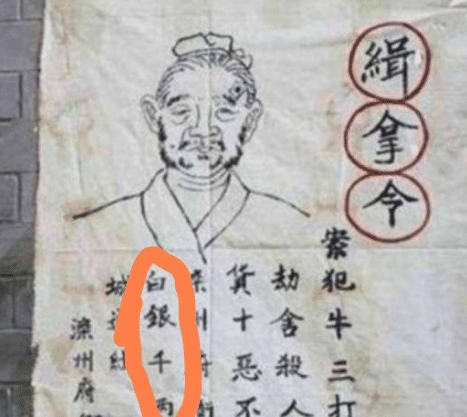 緝拿令
案犯牛三打
劫舍殺人
貨十惡不
灤州府衙
白銀千兩
城
灤州府